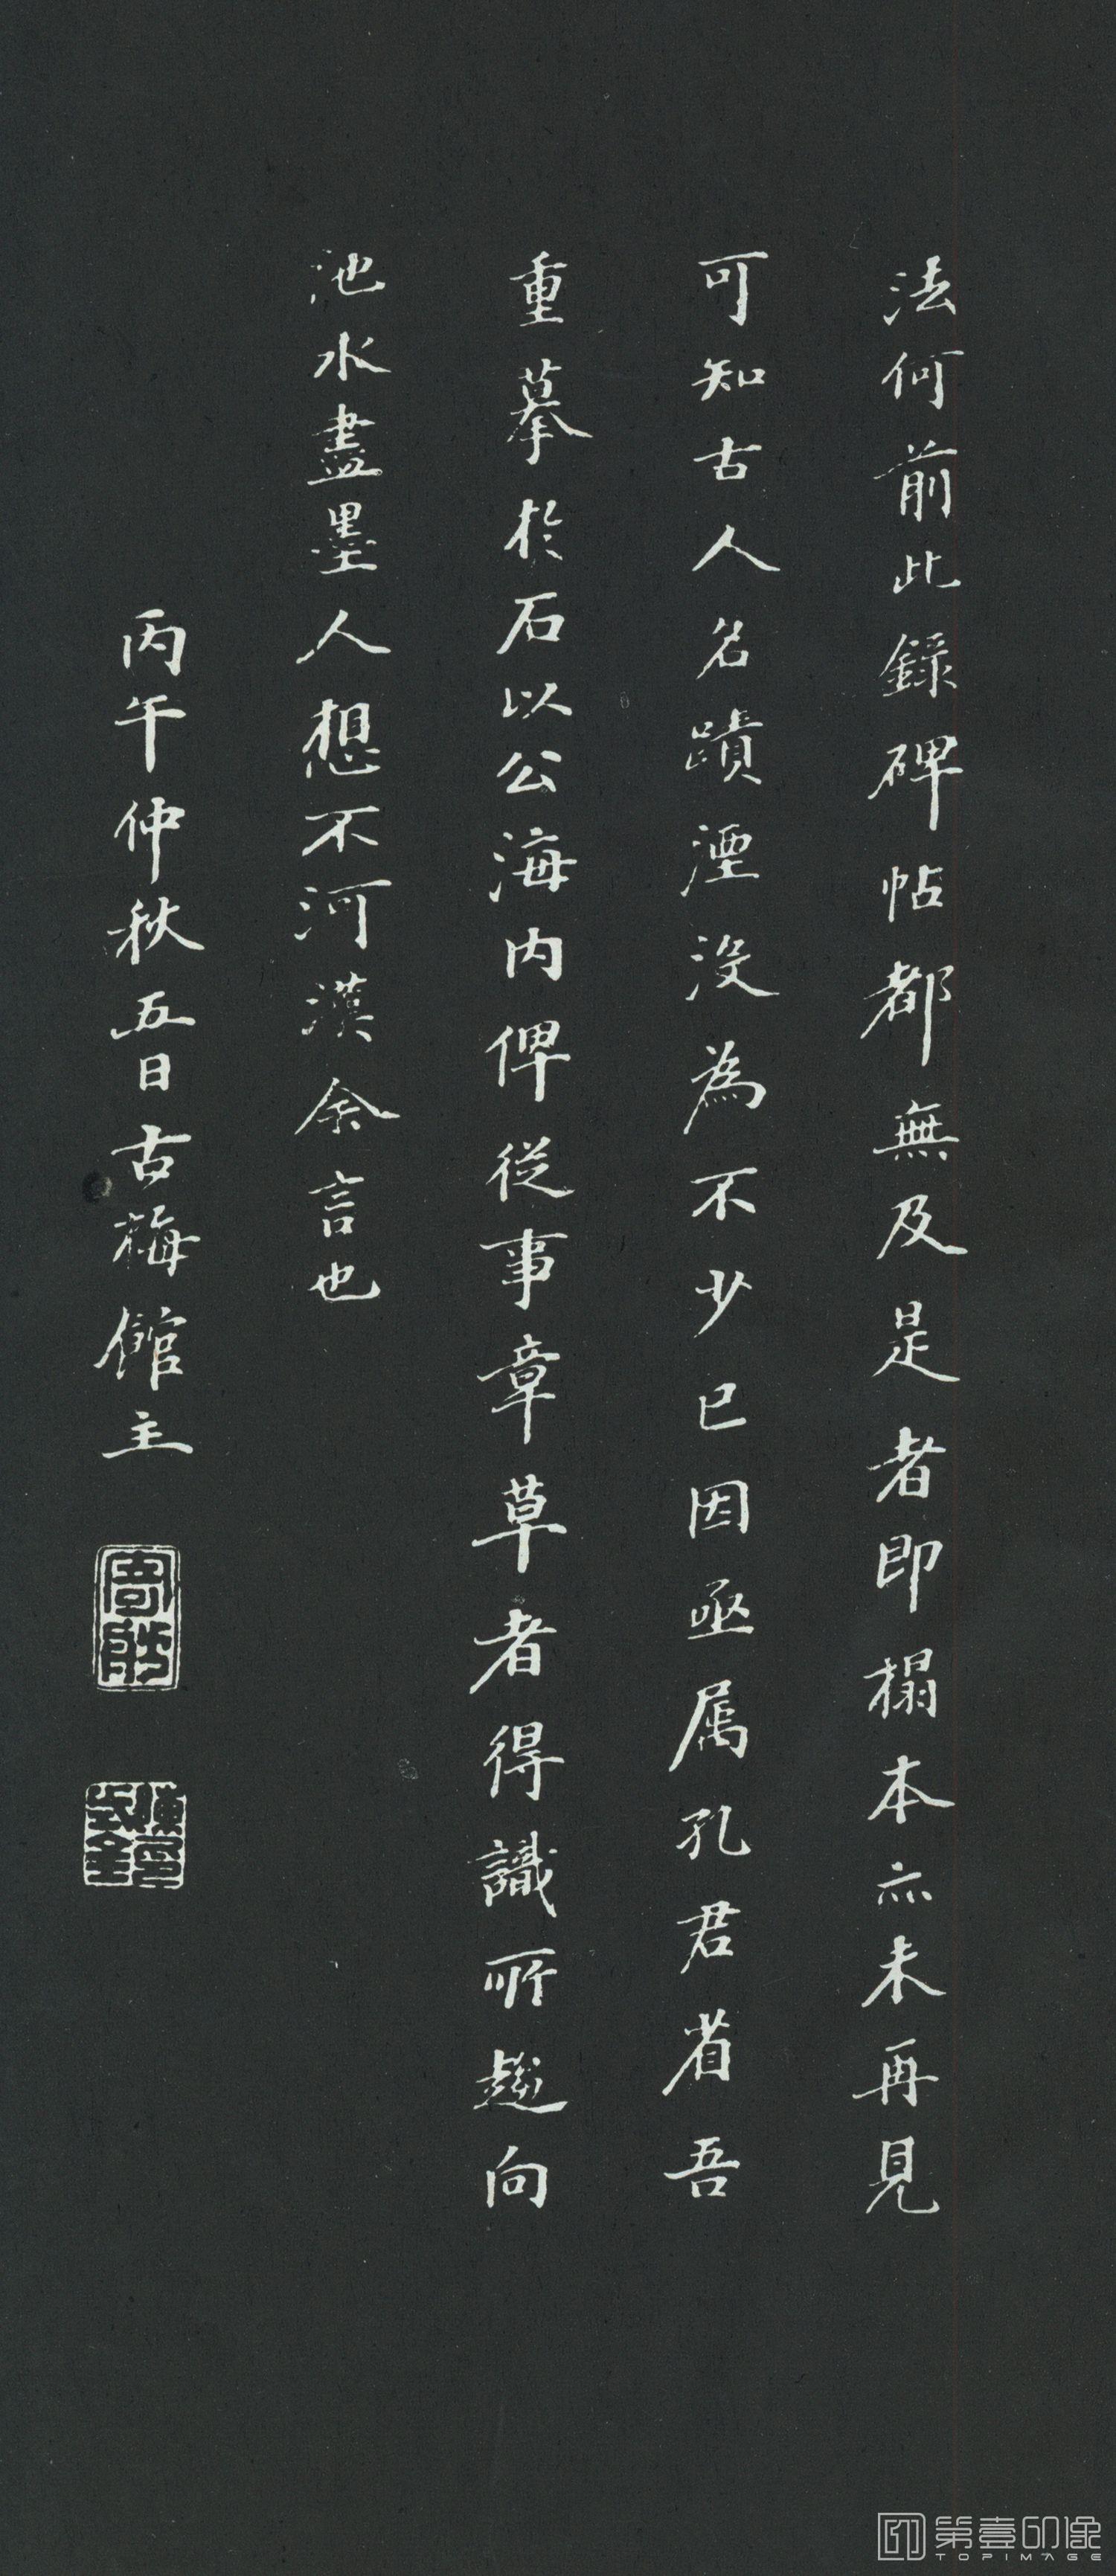 法何前此錄碑帖都無及是者即榻本亦未再見
可知古人名蹟湮沒為不少已因亟属孔君省吾
重摹於石以公海内俾從事章草者得識所趨向
池水盡墨人想不河漢余言也
丙午仲秋五日古梅館主
第壹印像
TOPIMAGE